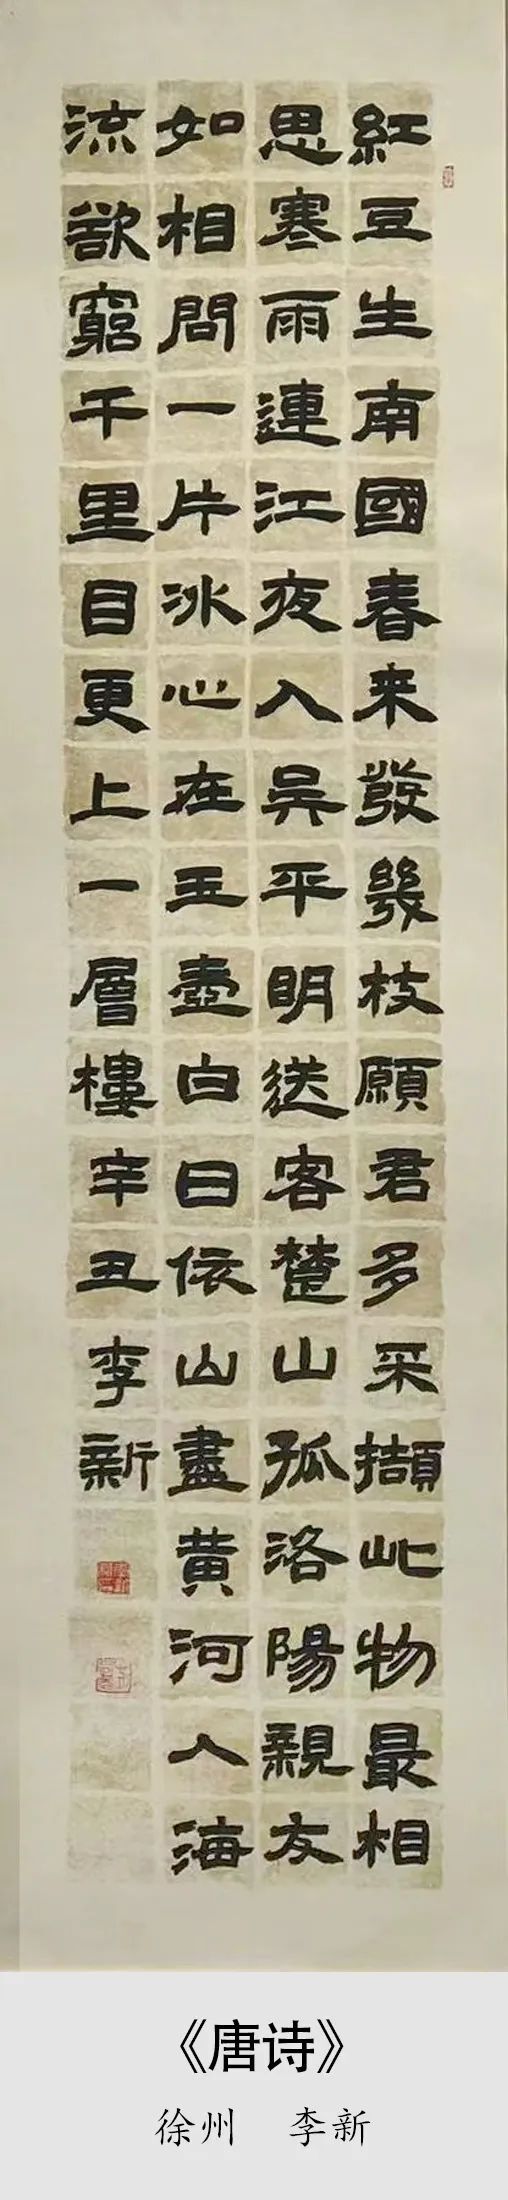 紅豆生南國春来發幾枝願君多采擷此物最相
思寒雨連江夜入吳平明送客楚山孤洛陽親友
如相問一片冰心在玉壺白日依山盡黄河入海
流欲窮千里目更上一層樓辛丑李新
《唐诗》
徐州 李新